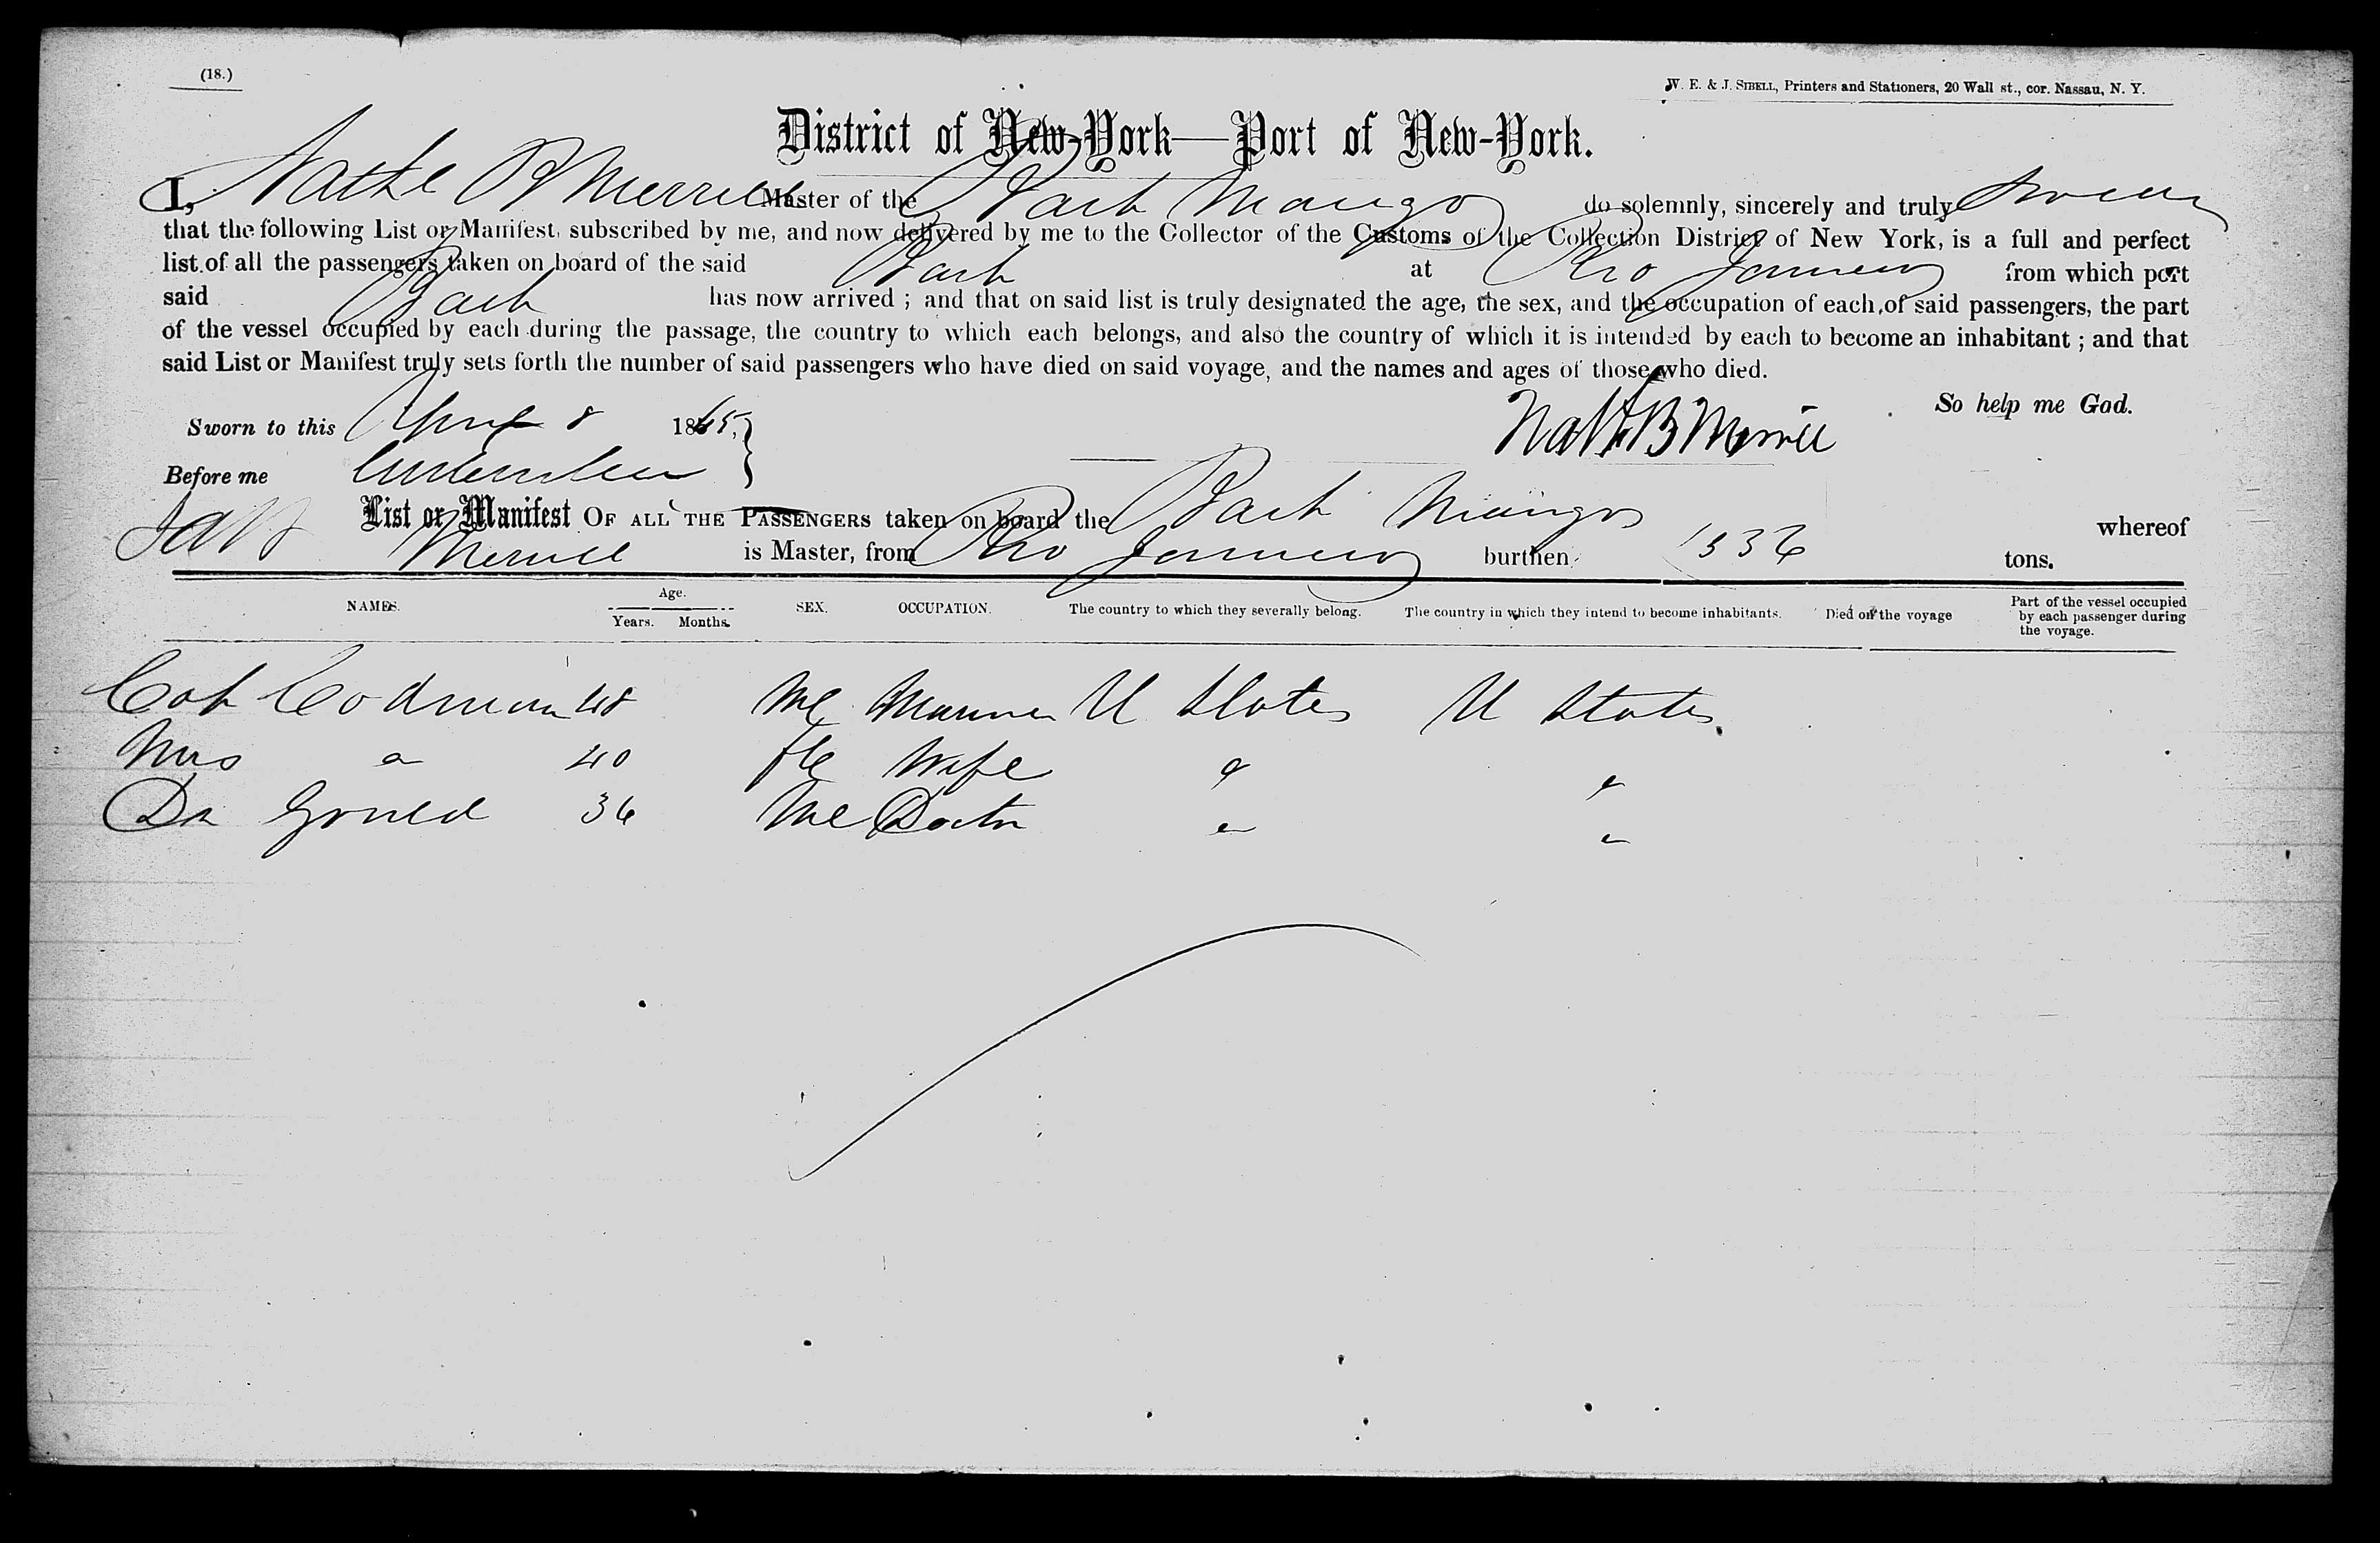 (18.)
W. E. & J. SIBELL, Printers and Stationers, 20 Wall st., cor. Nassau, N. Y.
District of New-York—Port of New-York.
I, Nathl B Merrill Master of the Bark Mango do solemnly, sincerely and truly swear
that the following List or Manifest, subscribed by me, and now delivered by me to the Collector of the Customs of the Collection District of New York, is a full and perfect
list of all the passengers taken on board of the said Bark at Rio Janeiro from which port
said Bark has now arrived ; and that on said list is truly designated the age, the sex, and the occupation of each of said passengers, the part
of the vessel occupied by each during the passage, the country to which each belongs, and also the country of which it is intended by each to become an inhabitant ; and that
said List or Manifest truly sets forth the number of said passengers who have died on said voyage, and the names and ages of those who died.
So help me God.
Sworn to this April 8 1865.
Nathl B Merrill
Before me
List or Manifest OF ALL THE PASSENGERS taken on board the Bark Mango whereof
Merrill is Master, from Rio Janeiro burthen 536 tons.
NAMES. Age. Years. Months. SEX. OCCUPATION. The country to which they severally belong. The country in which they intend to become inhabitants. Died on the voyage Part of the vessel occupied by each passenger during the voyage.
Codman 48 Me Mariner U States U States
Mrs " 40 Fe Wife " "
Dr Gould 36 Me Doctor " "